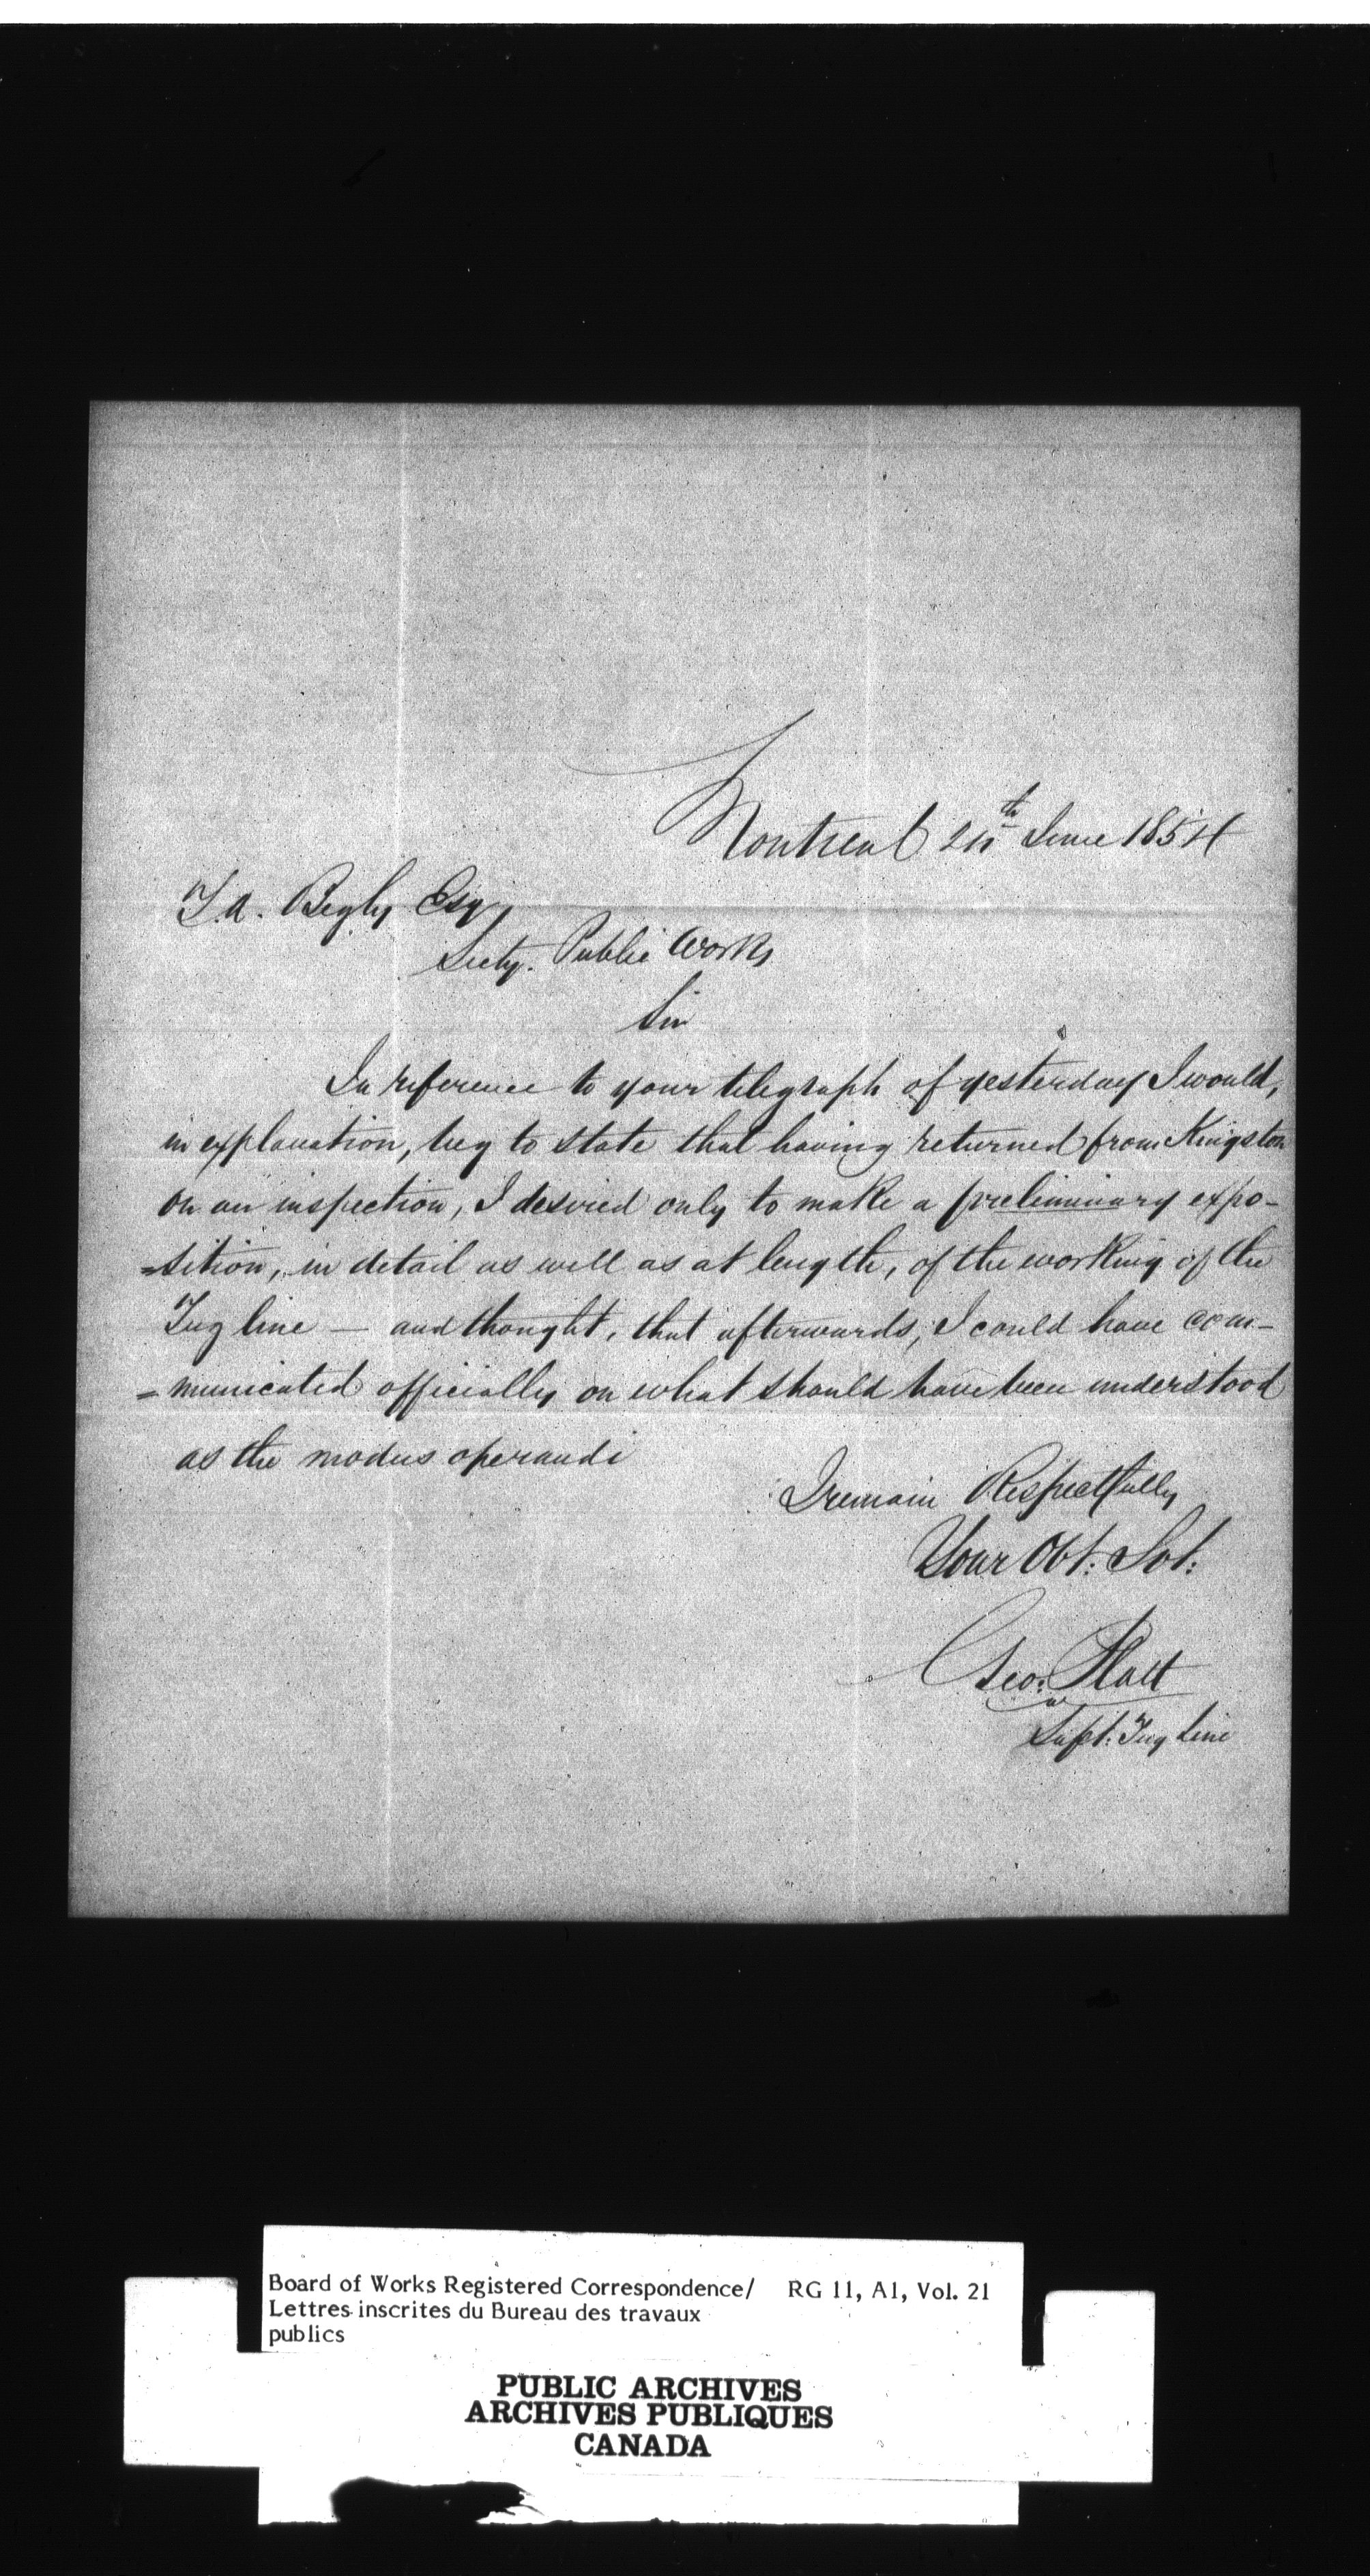 Montreal 24th June 1854
T.A. Begly Esqr
Secty. Public Works
Sir
In reference to your telegraph of yesterday I would,
in explanation, beg to state that having returned from Kingston
on an inspection, I desired only to make a preliminary expo-
=sition, in detail as well as at length, of the working of the
Tug line — and thought, that afterwards, I could have com-
=municated officially on what should have been understood
as the modus operandi
I remain Respectfully
Your Obt: Svt:
Geo: Platt
Supt: Tug Line
Board of Works Registered Correspondence/ RG 11, A1, Vol. 21
Lettres inscrites du Bureau des travaux
publics
PUBLIC ARCHIVES
ARCHIVES PUBLIQUES
CANADA